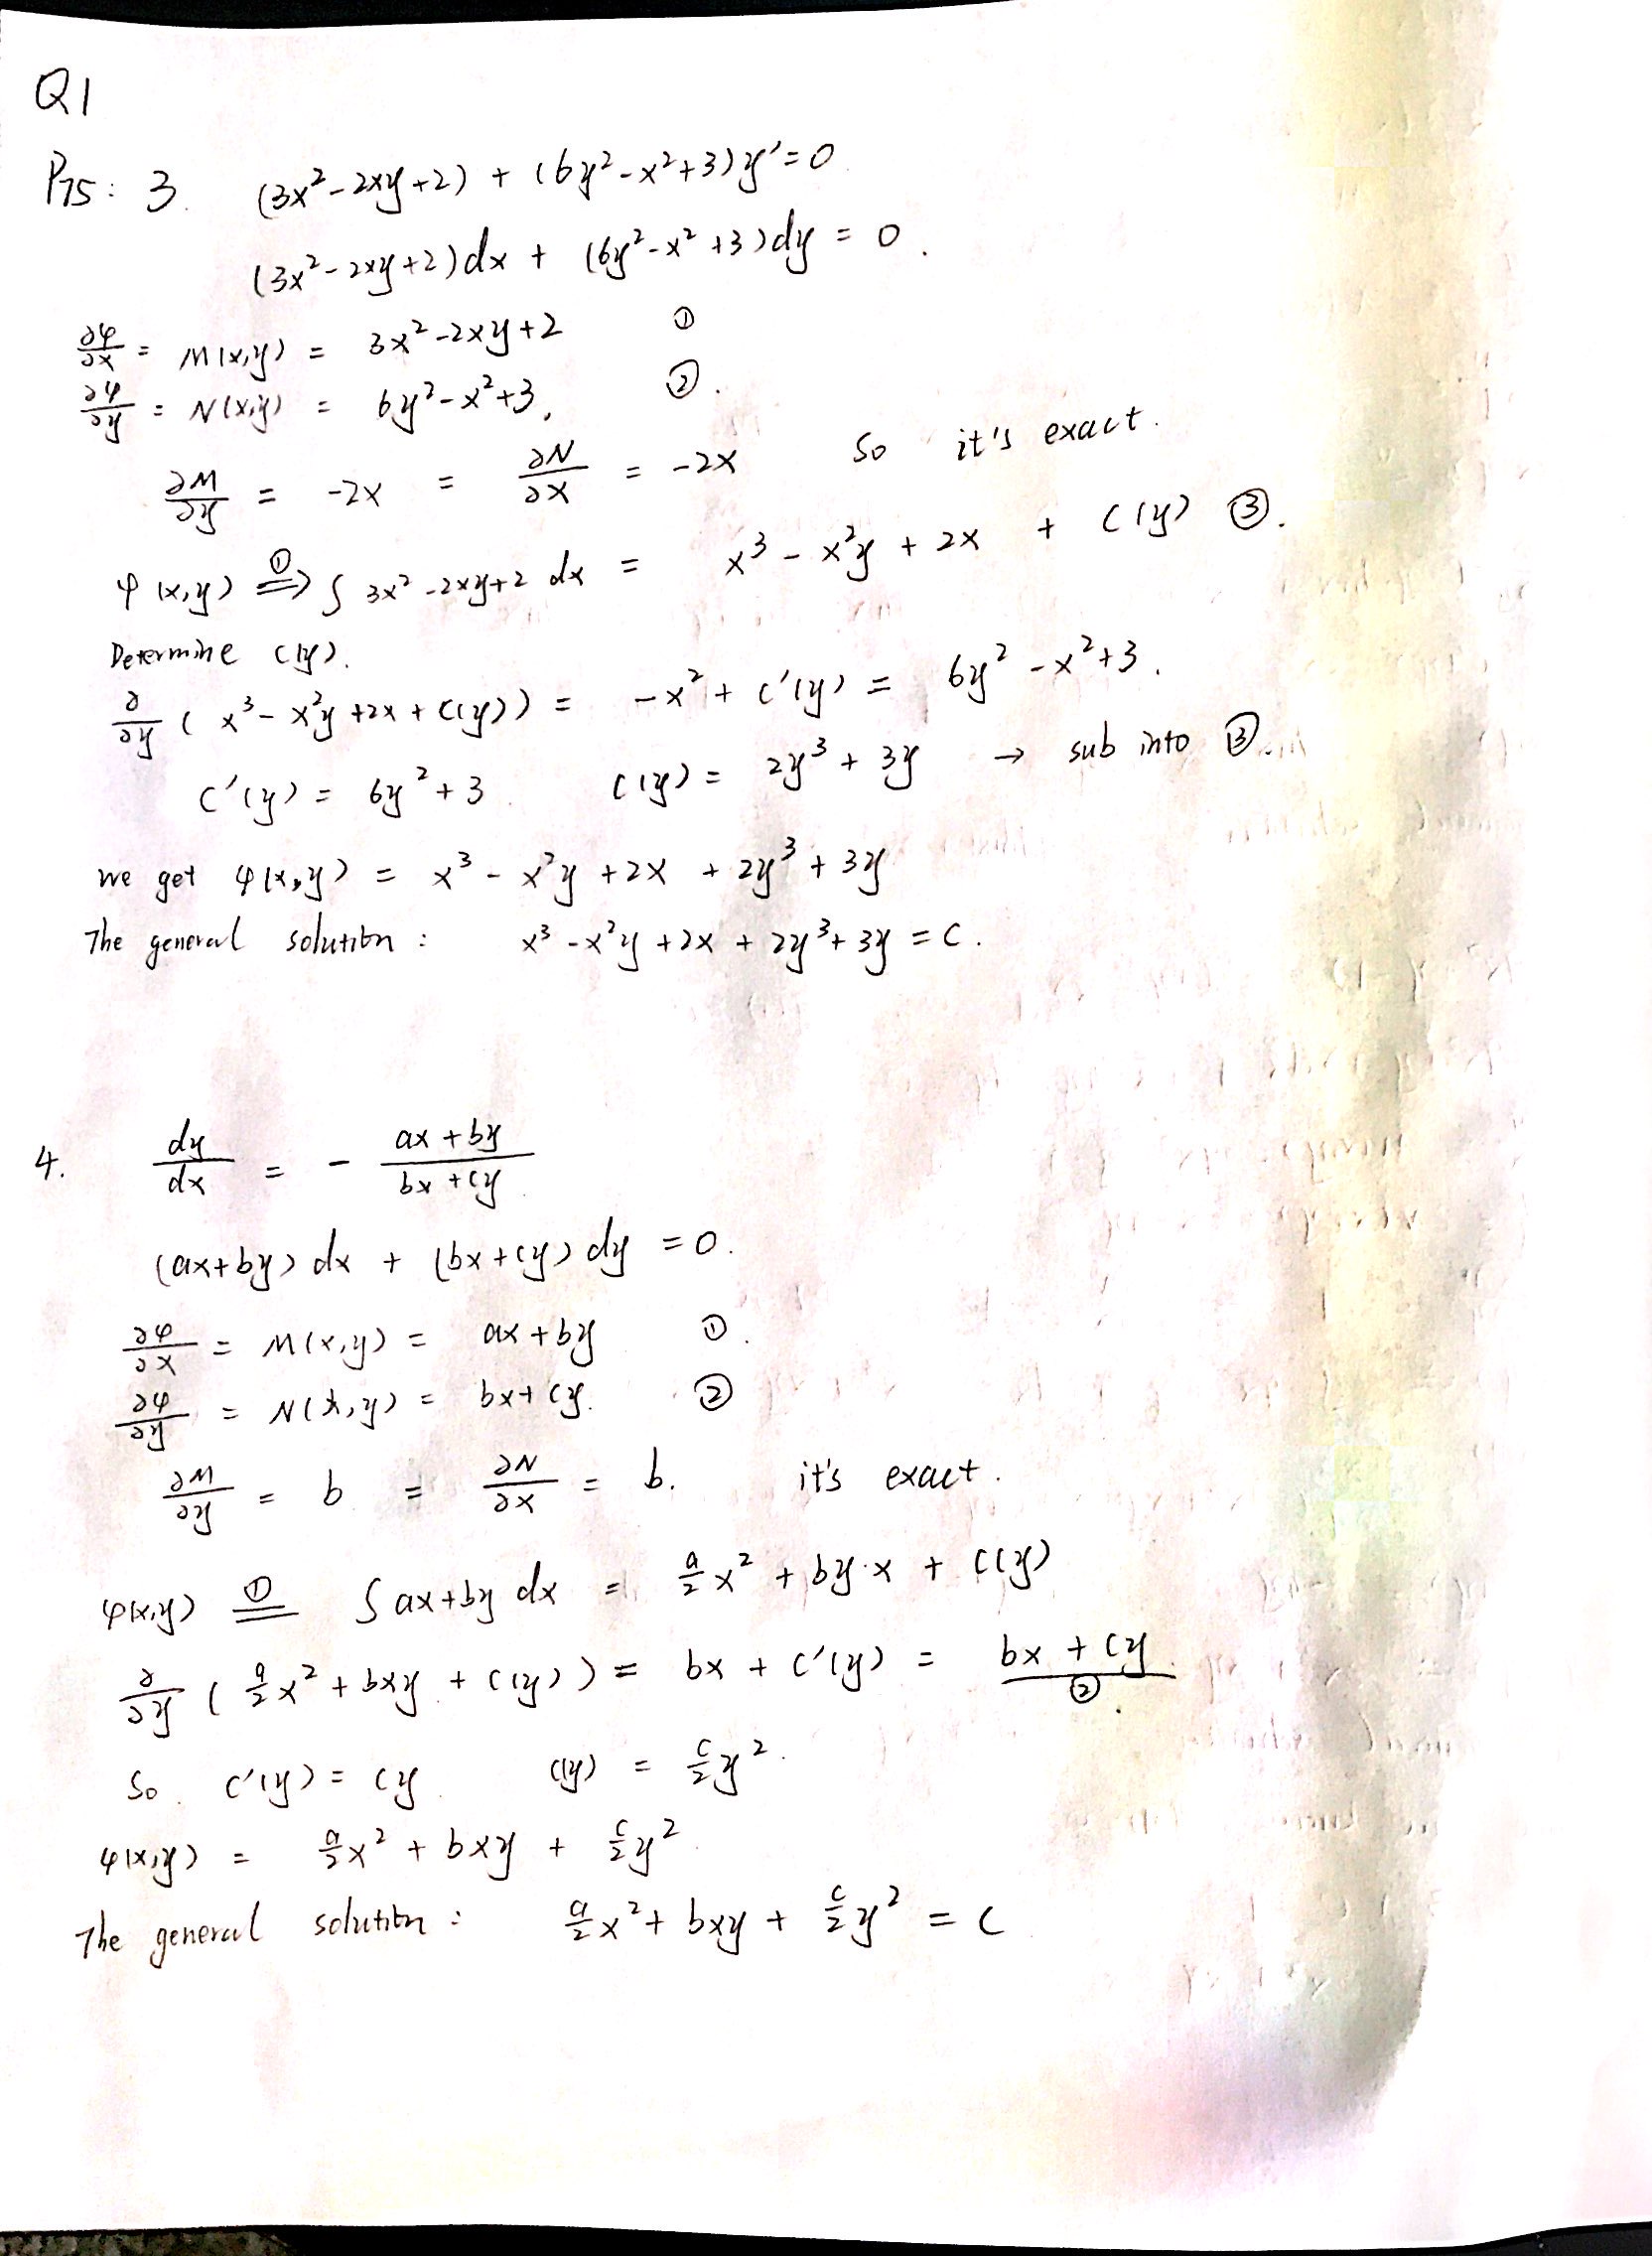 Q1
P75: 3. (3x²-2xy+2) + (6y²-x²+3)y'=0
(3x²-2xy+2)dx + (6y²-x²+3)dy = 0.
∂φ/∂x = M(x,y) = 3x²-2xy+2 ①
∂φ/∂y = N(x,y) = 6y²-x²+3, ②.
∂M/∂y = -2x = ∂N/∂x = -2x So it's exact.
φ(x,y) ①⇒ ∫ 3x²-2xy+2 dx = x³ - x²y + 2x + C(y) ③.
Determine C(y).
∂/∂y ( x³- x²y +2x + C(y)) = -x² + C'(y) = 6y² -x²+3.
C'(y) = 6y²+3. C(y) = 2y³ + 3y → sub into ③.
we get φ(x,y) = x³ - x²y +2x + 2y³ + 3y
The general solution: x³ -x²y +2x + 2y³+ 3y = C.
4. dy/dx = - (ax+by)/(bx+cy)
(ax+by) dx + (bx+cy) dy = 0.
∂φ/∂x = M(x,y) = ax+by ①.
∂φ/∂y = N(x,y) = bx+cy. ②
∂M/∂y = b = ∂N/∂x = b. it's exact.
φ(x,y) ①= ∫ ax+by dx = a/2 x² + by·x + C(y)
∂/∂y ( a/2 x² + bxy + C(y)) = bx + C'(y) = bx + cy ②.
So. C'(y) = cy C(y) = c/2 y².
φ(x,y) = a/2 x² + bxy + c/2 y²
The general solution: a/2 x² + bxy + c/2 y² = C